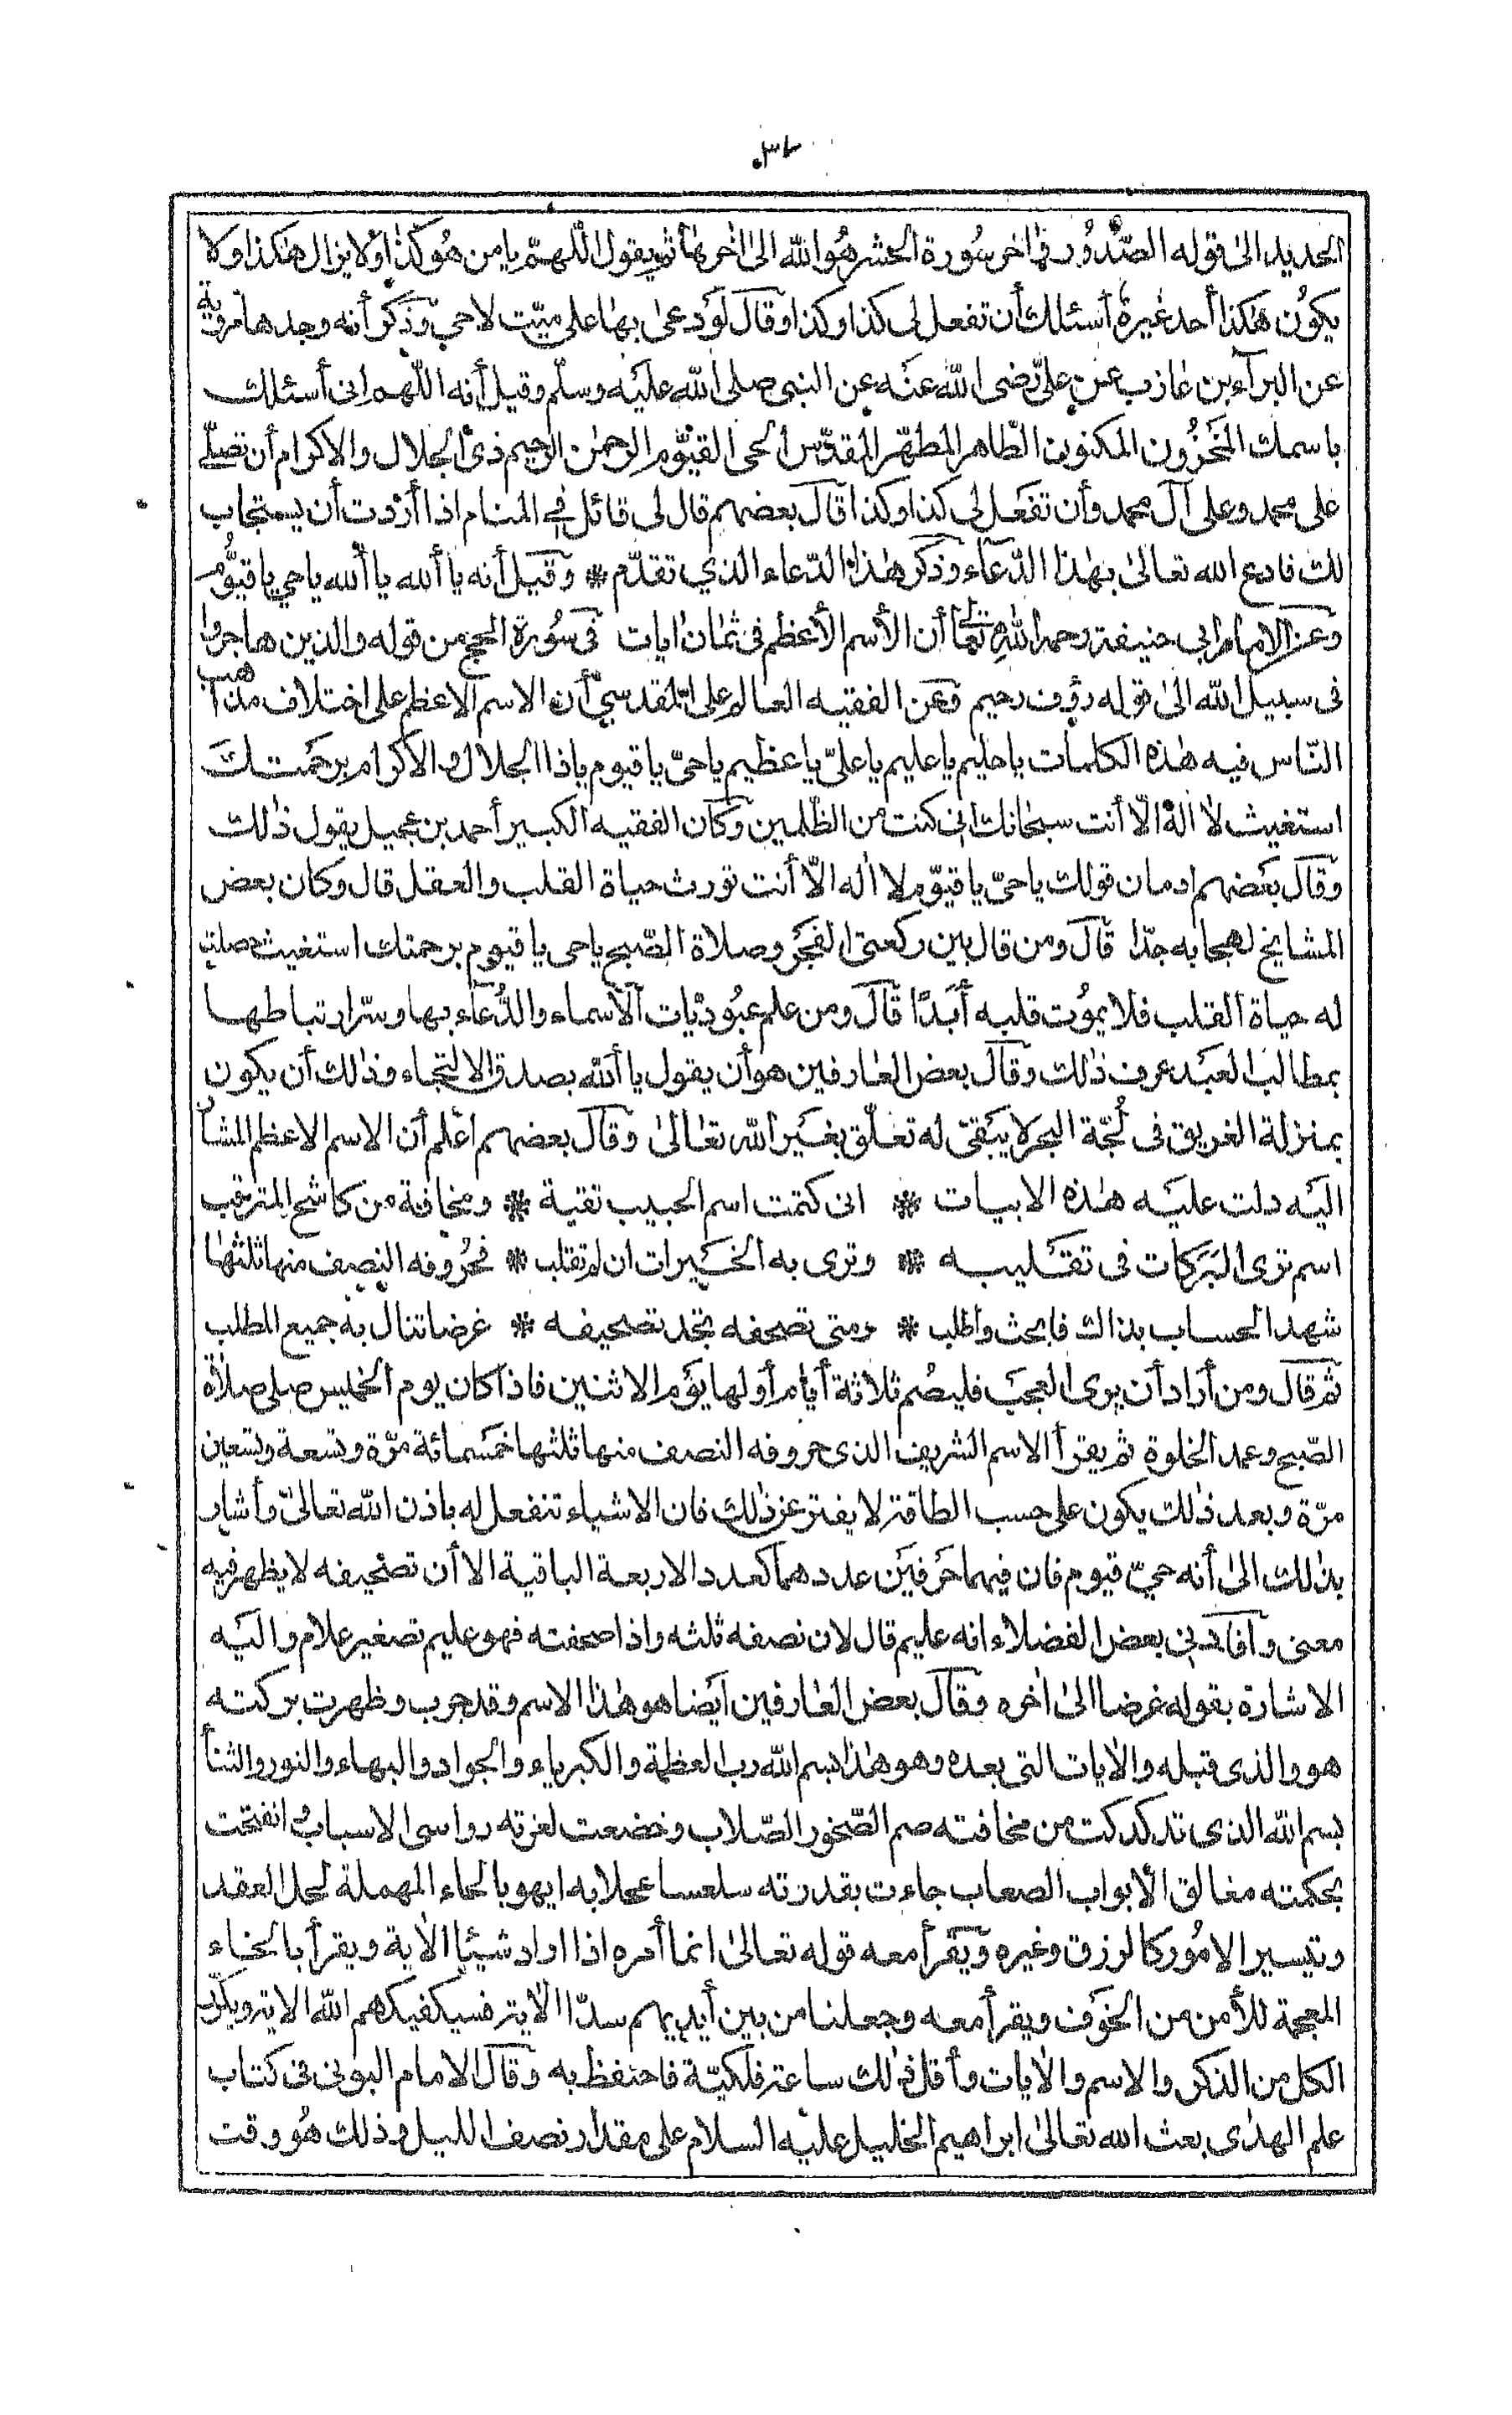 ٣٠
الحديد الى قوله الصّدُور في اخر سُورة الحشر هُو الله الى اخرها ثم يقول اللهمّ يا من هُو كذا ولا يزال هكذا ولا
يكوُن هكذا أحد غيره أسئلك أن تفعل لى كذا وكذا وقال لَو دعى بها على ميّت لاحي وذكر أنه وجدها مروية
عن البرآء بن عازب عن على رضى الله عنه عن النبى صلى الله عليه وسلّم وقيل أنه اللّهم انى أسئلك
باسمك المخزون المكنون الطّاهر المطهّر المقدّس الحى القيّوم الرحمٰن الرحيم ذى الجلال والاكرام أن تصلّى
على محمد وعلى آل محمد وأن تفعَل لى كذا وكذا قال بعضهم قال لى قائل في المنام اذا أردت أن يستجاب
لك فادع الله تعالى بهٰذا الدّعاء وذكر هٰذا الدّعاء الذي تقدّم * وقيل أنه يا ألله يا ألله يا حي يا قيُّوم
وعن الامام ابي حنيفة رحمه الله تعالى أن الأسم الأعظم في ثمان ايات فى سُورة الحج من قوله والذين هاجروا
فى سبيل الله الى قوله رؤف رحيم وعن الفقيه العالم على المقدسيّ أن الاسم الاعظم على اختلاف مذاهب
النّاس فيه هٰذه الكلمات يا حليم يا عليم يا علىّ يا عظيم يا حىّ يا قيوم يا ذا الجلال والاكرام برحمتك
استغيث لا اله الّا أنت سبحانك انى كنت من الظّلمين وكان الفقيه الكبير أحمد بن عجيل يقول ذٰلك
وقال بعضهم ادمان قولك يا حىّ يا قيّوم لا اله الّا أنت تورث حياة القلب والعقل قال وكان بعض
المشايخ لهجا به جدّا قال ومن قال بين ركعتى الفجر وصلاة الصّبح يا حى يا قيوم برحمتك استغيث حصلت
له حياة القلب فلا يموُت قلبه أبَدًا قال ومن علم عبُوديّات الأسماء والدُّعاء بها وسرّ ارتباطها
بمطالب العبد عرف ذٰلك وقال بعض العارفين هو أن يقول يا ألله بصدق الالتجاء وذٰلك أن يكون
بمنزلة الغريق فى لُجّة البحر لا يبقى له تعلّق بغير الله تعالى وقال بعضهم اعلم أن الاسم الاعظم المشار
اليَه دلت عليَه هذه الابيات * انى كتمت اسم الحبيب تقية * ومخافة من كاشح المترقب
اسم ترى البَركات فى تقليبه * وترى به الخيرات ان لم تقلب * فحرُوفه النصف منها ثلثها
شهد الحساب بذاك فابحث واطلب * ومتى تصحفه تجد تصحيفه * غرضا تنال به جميع المطلب
ثم قال ومن أراد أن يرى العجبَ فليصُم ثلاثة أيّام أولها يوَم الاثنين فاذا كان يوم الخميس صلى صلاة
الصّبح وعمد الخلوة ثم يقرأ الاسم الشريف الذى حروفه النصف منها ثلثها خمسمائة مرّة وتسعة وتسعين
مرّة وبعد ذٰلك يكون على حسب الطاقة لا يفتر عن ذٰلك فان الاشياء تنفعل له باذن الله تعالى وأشار
بذٰلك الى أنه حيّ قيوم فان فيهما حَرفيَن عددهما كعدد الاربعة الباقية الا أن تصحيفه لا يظهر فيه
معنى وأفادنى بعض الفضلاء انه عليم قال لان نصفه ثلثه واذا صحفته فهو عليم تصغير علام واليَه
الاشارة بقوله غرضا الى اخره وقال بعض العارفين ايَضا هو هٰذا الاسم وقد جرب وظهرت بركته
هو والذى قبله والايات التى بعده وهو هٰذا بسم الله رب العظمة والكبرياء والجواد والبهاء والنور والثناء
بسم الله الذى تدكدكت من مخافته صم الصّخور الصّلاب وخضعت لعزته رواسى الاسباب وانفتحت
بحكمته مغالق الأبواب الصعاب جاءت بقدرته سلعسا عجلا به ايهو بالحاء المهملة لحل العقد
وتيسير الامُور كالرزق وغيره وَيقرأ معه قوله تعالى انما أمره اذا اراد شيئا الأية ويقرأ بالخاء
المعجمة للأمن من الخوَف ويقرأ معه وجعلنا من بين أيديهم سدّا الآية فسيكفيكهم الله الاية ويكرّر
الكل من الذكر والاسم والايات وأقل ذٰلك ساعة فلكيّة فاحتفظ به وقال الامام البونى فى كتاب
علم الهدى بعث الله تعالى ابراهيم الخليل عليه السلام على مقدار نصف الليل وذلك هُو وقت